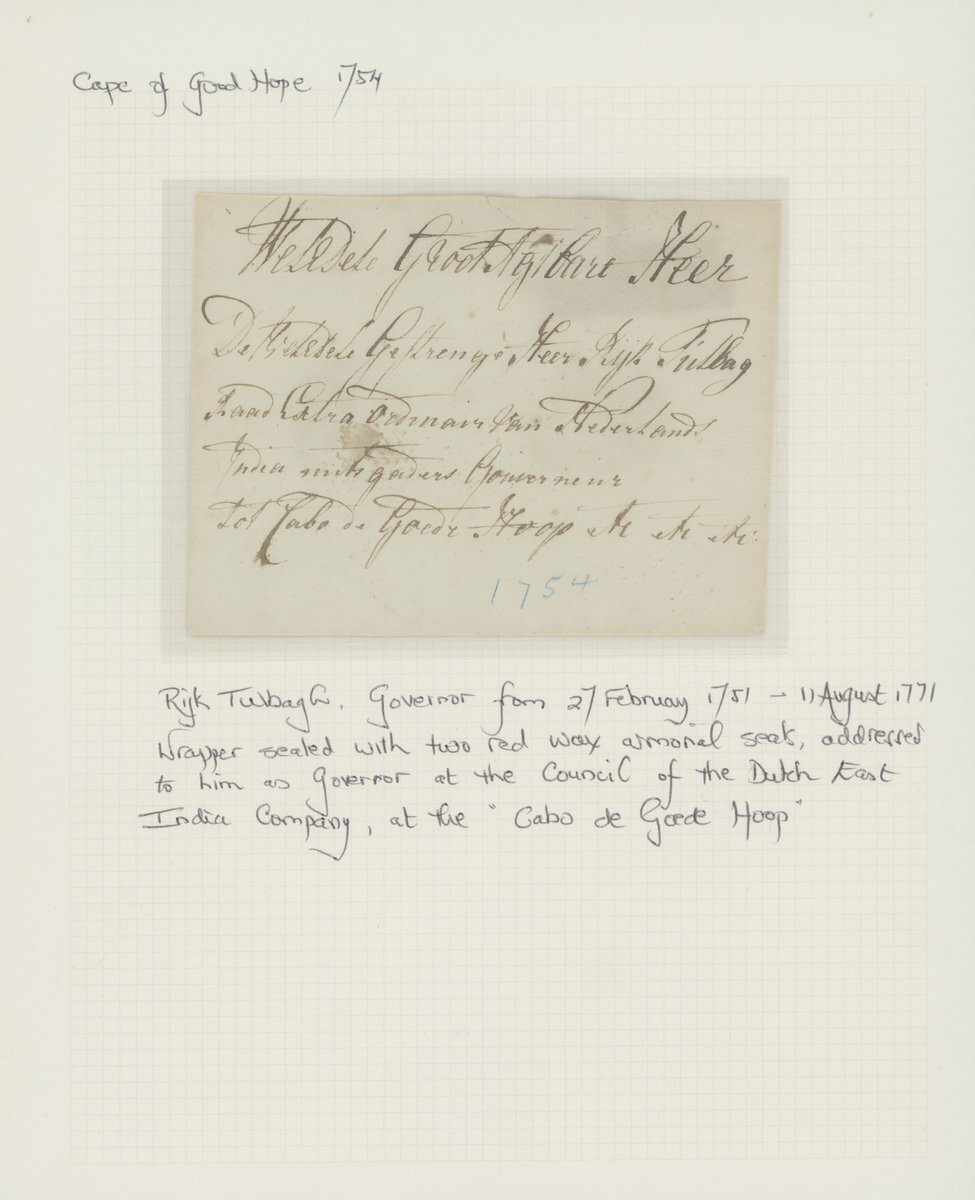 Cape of Good Hope 1754
WelEdele GrootAgtbare Heer
De WelEdele Gestrenge Heer Rijk Tulbag
Raad Extra Ordinair Van Nederlands
India mitsgaders Gouverneur
tot Cabo de Goede Hoop etc etc etc:
1754
Rijk Tulbagh, Governor from 27 February 1751 - 11 August 1771
Wrapper sealed with two red wax armorial seals, addressed
to him as Governor at the Council of the Dutch East
India Company, at the "Cabo de Goede Hoop"